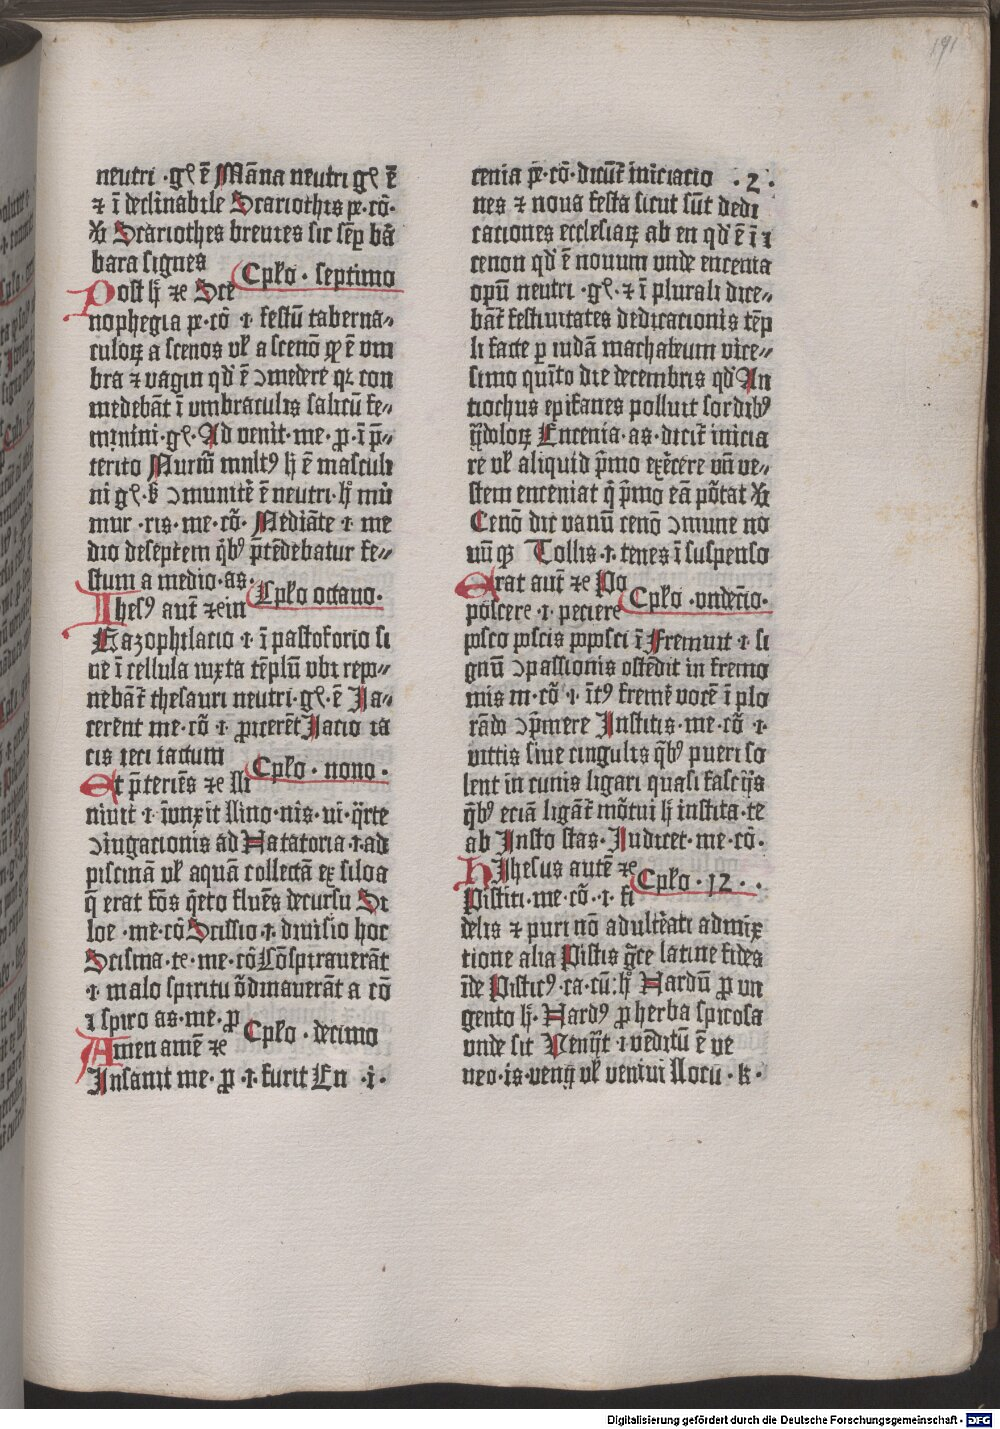 191
neutri ·gͥ ē Māna neutri gͥ ē
⁊ ī declīnabile Scariothis pe· cō·
Xͥ Scariothes breues sic sēp bā
bara signes
Cplo · septimo
Post hͥ ⁊c Sce
nophegia pe· cō ·i· festū taberna„
culoꝝ a scenos vl̄ a scenō qͦ ē vm
bra ⁊ vagin qd̄ ē ꝯmedere qꝛ con
medebāt ī vmbraculis salicū fe„
minini ·gͥ· Ad venit· me· ꝓ· i p̄„
terito Murm̄ mult⁹ hͥ ē masculi
ni gͥ· k̄ ꝯmunitē ē neutri· hͥ mū
mur ·ris· me· cō· Mediāte ·i· me
dio deseptem qͥb⁹ p̄tēdebatur fe„
stum a medio· as·
Cplo octauo·
Ihes⁹ aut̄ ⁊c in
Gazophilacio ·i· ī pastoforio si
ue ī cellula iuxta tēplū vbi repo„
nebāt̄ thesauri neutri· gͥ· ē Ia„
cerēnt me· cō ·i· ꝓicerēt Iacio ia
cis ieci iactum
Cplo · nono·
Et p̄teriēs ⁊c li
niuit ·i· iunxit Lino· nis· ui· qͣrte
ꝯiugacionis ad Natatoria ·i· ad
piscinā vl̄ aquā collectā ex siloa
q̄ erat fōs qͥeto fluēs decursu Si
loe ·me· cō Scissio ·i· diuisio hoc
Scisma· te· me· cō Cōspirauerāt
·i· malo spiritu ōdinauerāt a cō
⁊ spiro as· me· ꝓ
Cplo · decimo
Amen amē ⁊c
Insanit me· ꝓ ·i· furit En ·i·
cenia pe· cō· dicūt̄ iniciacio ·2·
nes ⁊ noua festa sicut sūt dedi
caciones ecclesiaꝝ ab en qd̄ ē ī ⁊
cenon qd̄ ē nouum vnde encenia
opū neutri ·gͥ· ⁊ ī plurali dice„
bāt̄ festiuitates dedicacionis tēp
li facte ꝑ iudā machabeum vice„
simo quīto die decembris qd̄ An
tiochus epifanes polluit sordib⁹
ydoloꝝ Encenia· as· dicit̄ inicia
re vl̄ aliquid p̄mo exēcere vn̄ ve„
stem enceniat qͥ p̄mo eā pōtat Xͥ
Cenō dic vanū cenō ꝯmune no
uū qꝫ Tollis ·i· tenes ī suspenso
Erat aut̄ ⁊c Po
Cplo · vndecio·
poscere ·i· petere
posco poscis poposci ī Fremuit ·i· si
gnū ꝯpassionis ostēdit in fremo
mis m· cō ·i· īt⁹ fremē vocē ī plo
rādo ꝯp̄mere Institis· me· cō ·i·
vittis siue cingulis qͥb⁹ pueri so
lent in cunis ligari quasi fascijs
qͥb⁹ eciā ligāt̄ mōtui hͥ instita· te
ab Insto stas· Iudicet· me· cō·
Ihesus autē ⁊c
Cplo · 12 · ·
Pistici· me· cō· ·i· fi
delis ⁊ puri nō adultēati admix
tione alia Pistis gͣce latine fides
īde Pistic⁹· ca· cū: hͥ Nardū ꝓ vn
gento hͥ· Nard⁹ ꝓ herba spicosa
vnde sit Venijt ·i· vēditū ē ve
neo· is· venij vl̄ veniui Locu· k·
Digitalisierung gefördert durch die Deutsche Forschungsgemeinschaft - DFG